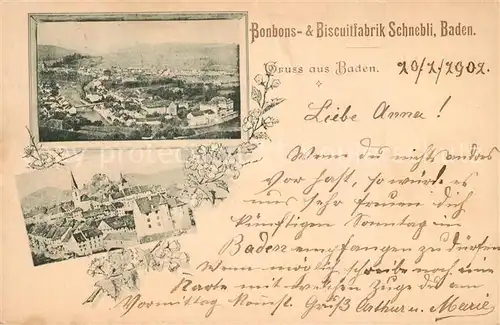 Bonbons- & Biscuitfabrik Schnebli, Baden.
Gruss aus Baden.
20/2/1902.
Liebe Anna!
Wenn du nichts anders
vor hast, so würde es
uns sehr freuen dich
künftigen Sonntag in
Baden empfangen zu dürfen
Wenn möglich schreibe noch eine
Karte mit welchem Zuge du am
Vormittag kommst. Gruß Arthur u. Marie